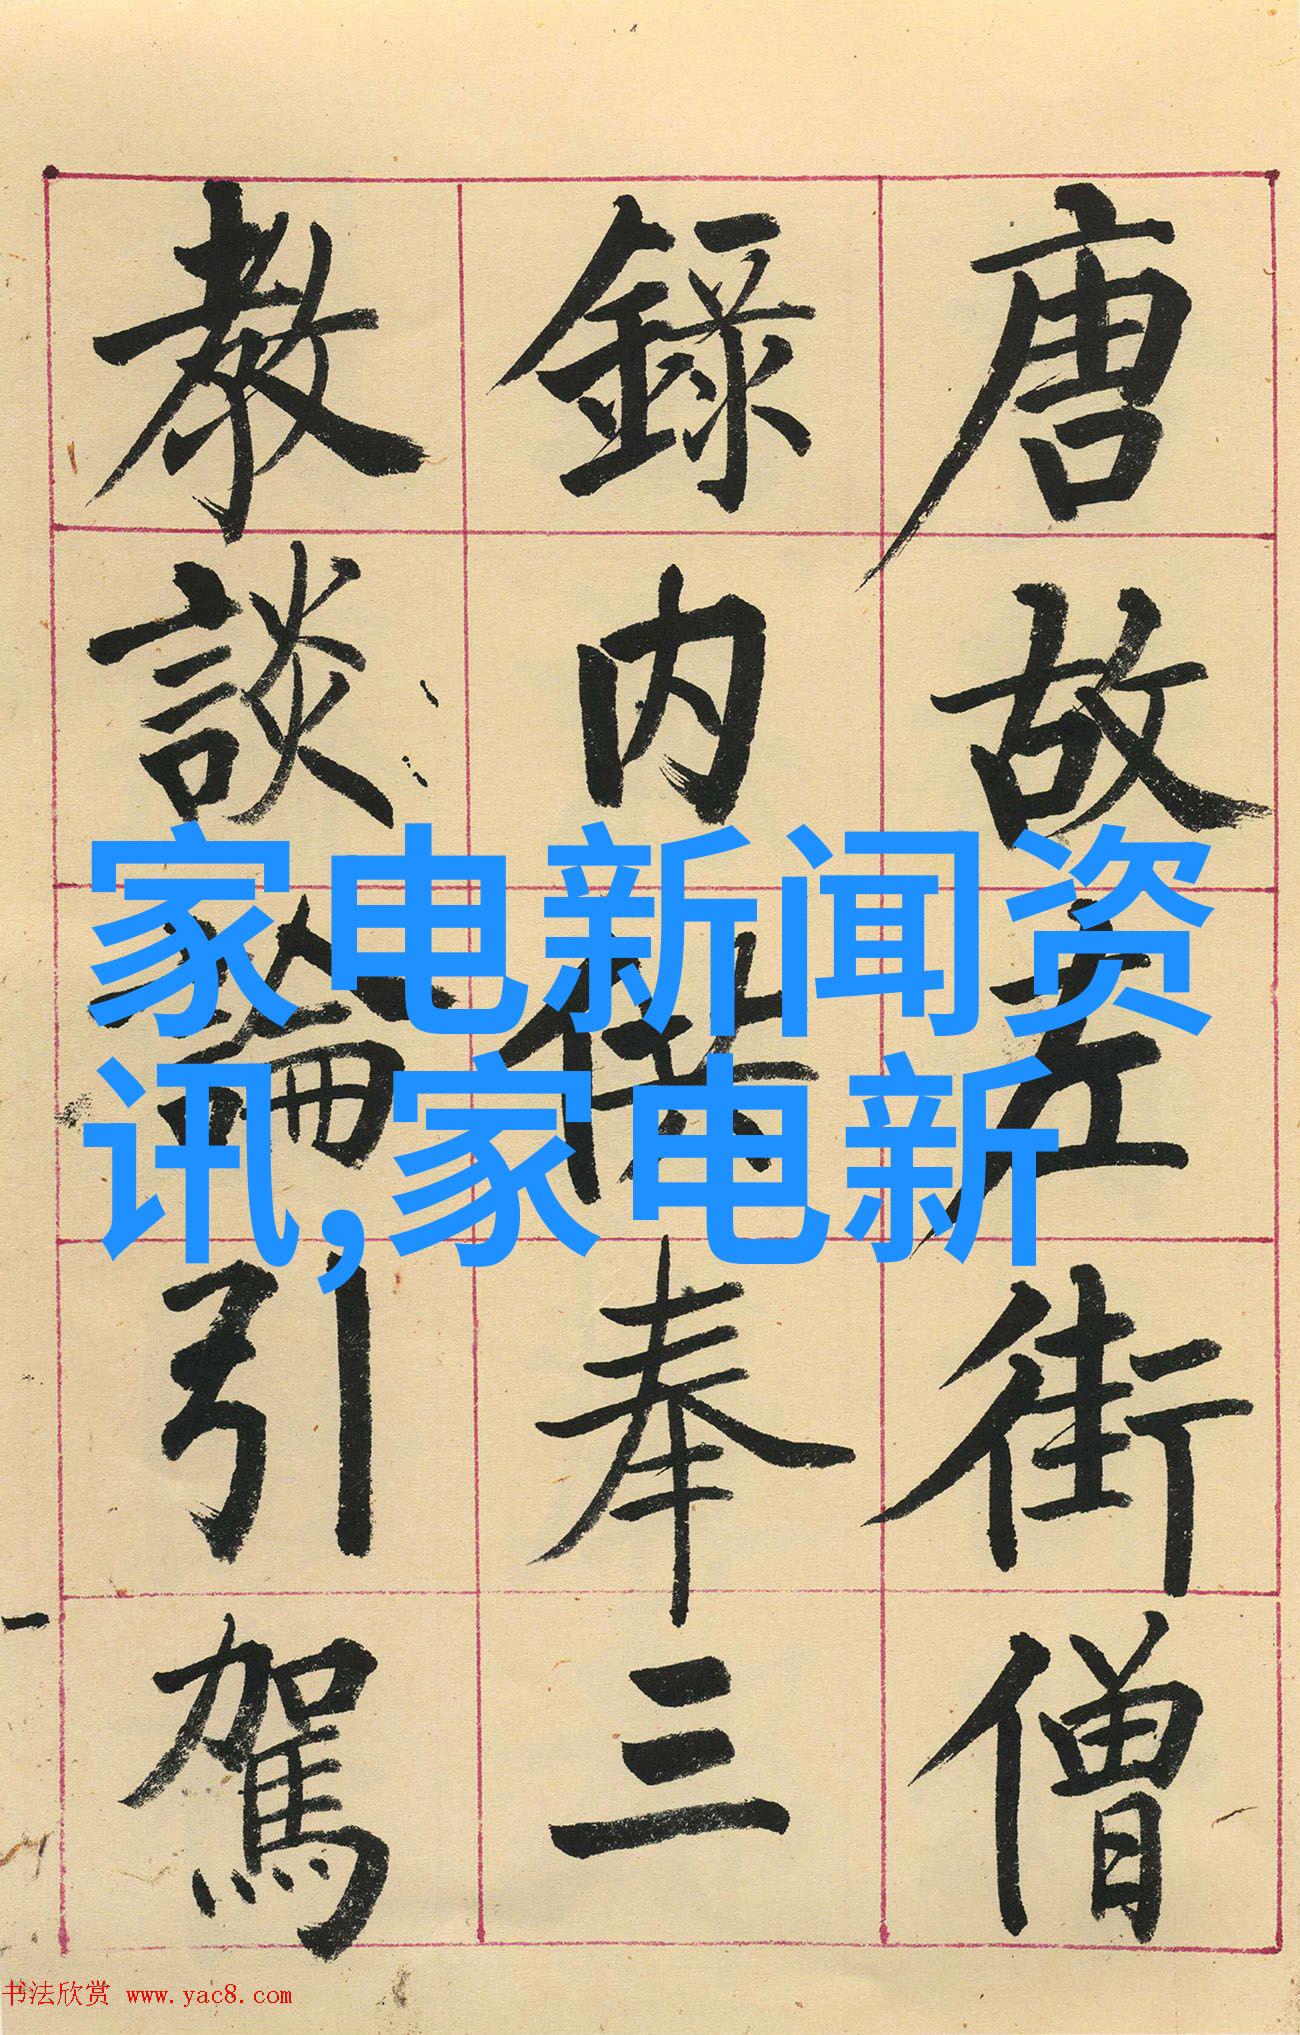 唐故左街僧
錄內供奉三
教談論引駕
家电新闻资
讯,家电新
书法欣赏 www.yac8.com